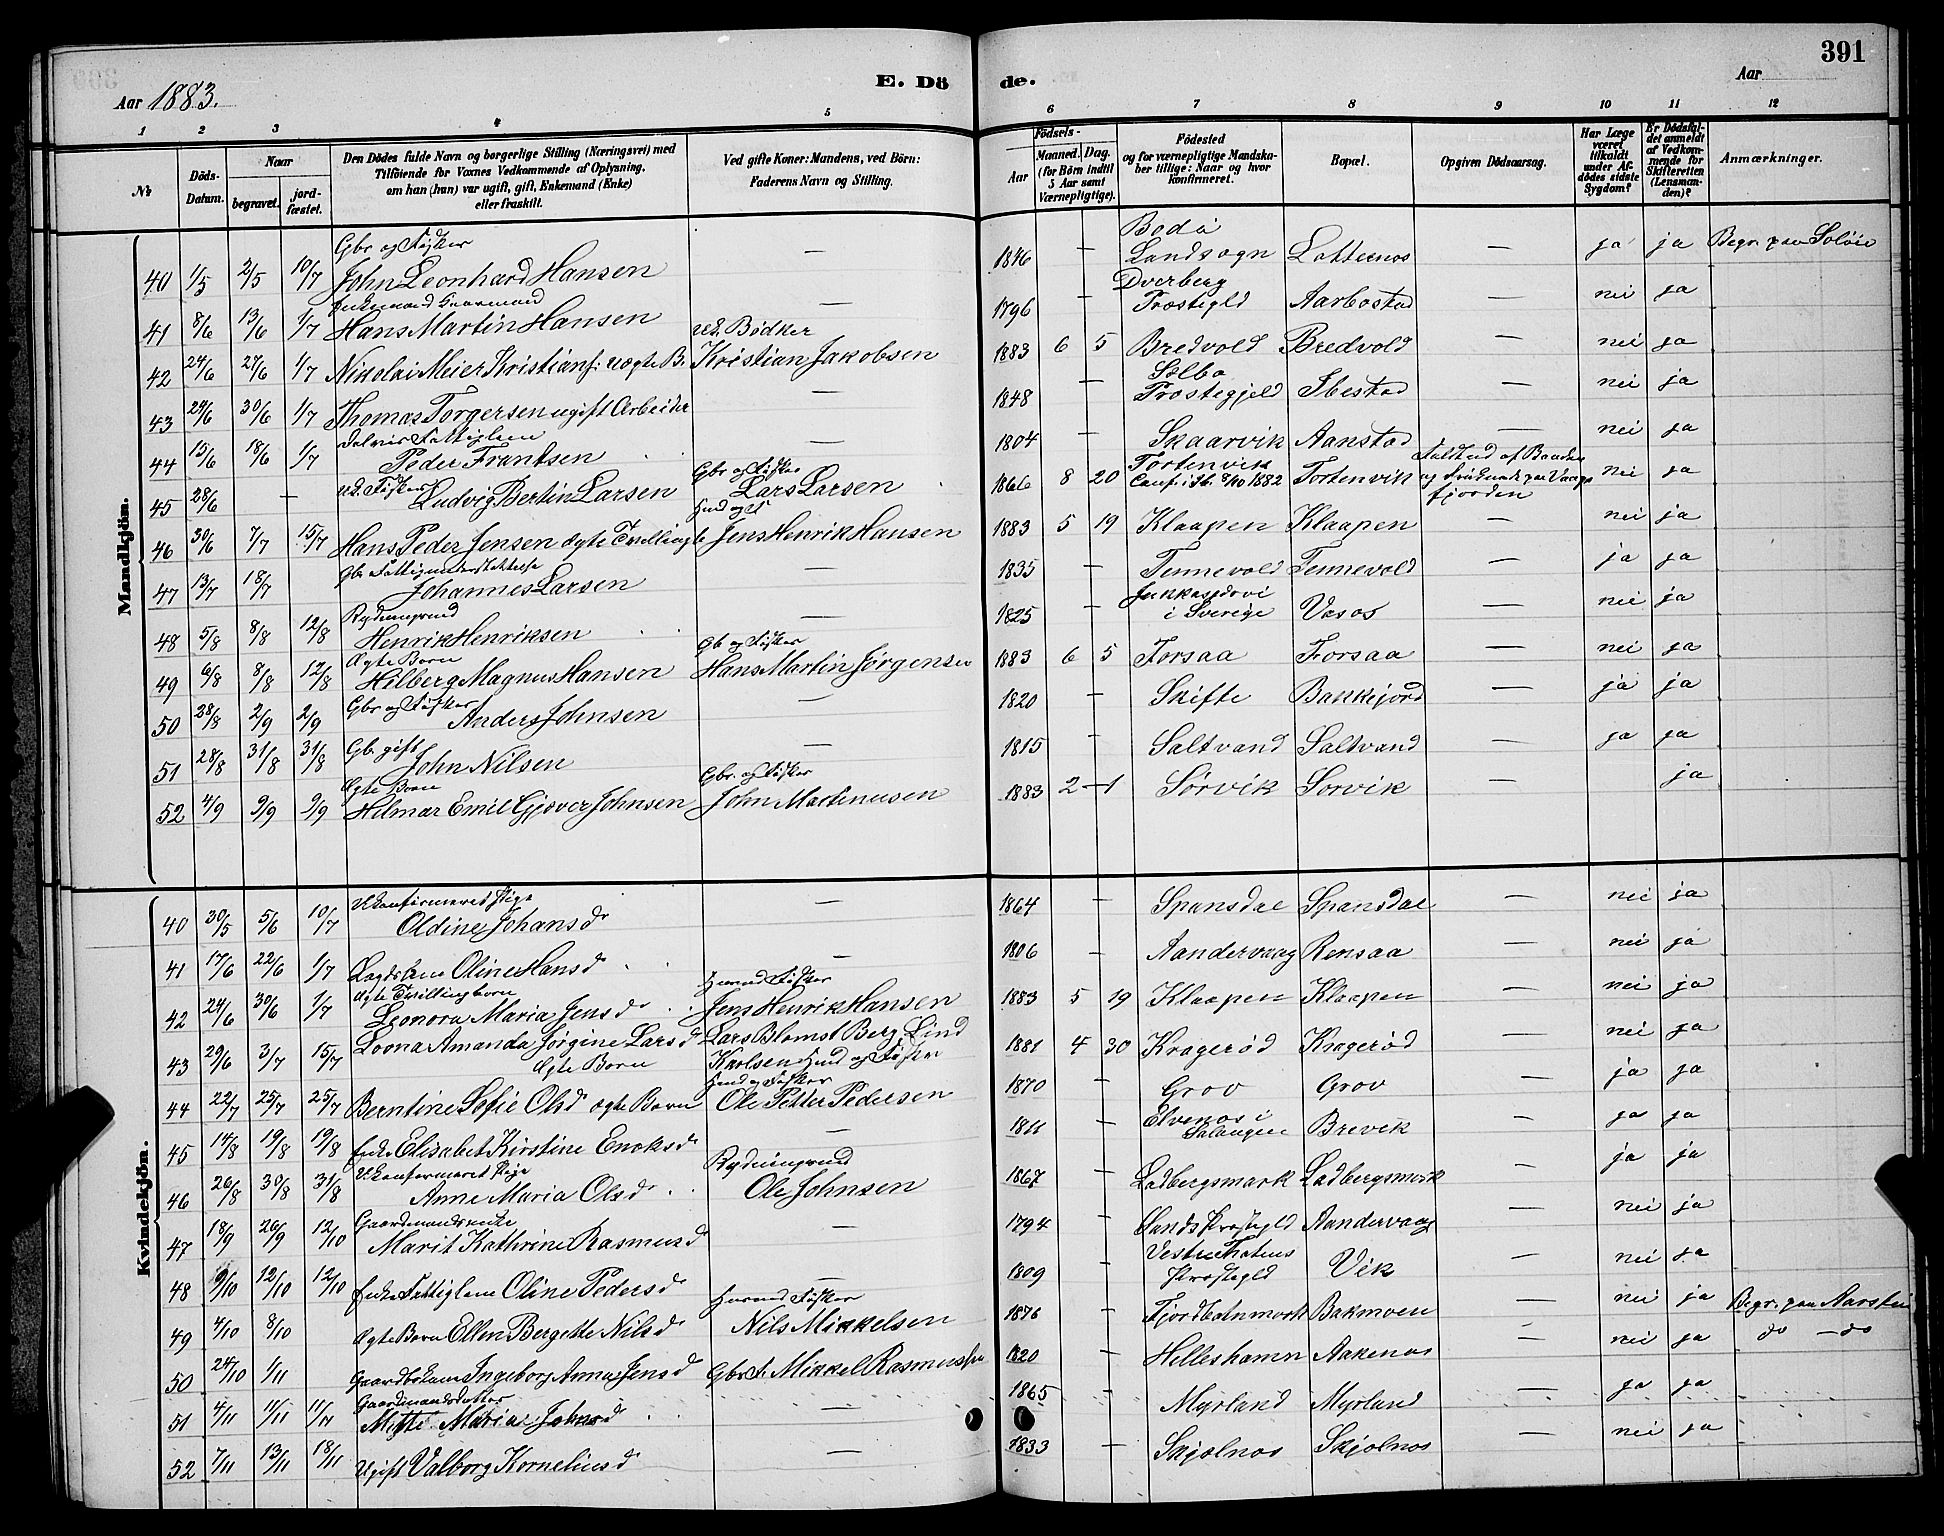 391
Aar 1883. E. Dö de. Aar
1 2 3 4 5 6 7 8 9 10 11 12
No
Döds-Datum.
Naar begravet. jord-fæstet.
Den Dödes fulde Navn og borgerlige Stilling (Næringsvei) med
Tilföiende for Voxnes Vedkommende af Oplysning,
om han (hun) var ugift, gift, Enkemand (Enke)
eller fraskilt.
Ved gifte Koner: Mandens, ved Börn:
Faderens Navn og Stilling.
Födsels-
Aar Maaned. Dag.
(for Börn indtil
5 Aar samt
Værnepligtige).
Födested
og for værnepligtige Mandska-
ber tillige: Naar og hvor
konfirmeret.
Bopæl.
Opgiven Dödsaarsag.
Har Læge
været
tilkaldt
under Af-
dödes sidste
Sygdom?
Er Dödsfal-
det anmeldt
af Vedkom-
mende for
Skifteretten
(Lensman-
den)?
Anmærkninger.
Mandkjön.
40 1/5 2/5 10/7 Gbr og Fisker John Leonhard Hansen — 1846 — Bodö Landsogn Lotternos — ja ja Begr. paa Soløie
41 8/6 13/6 1/7 Enkemand Gaarmand Hans Martin Hansen — 1796 — Dverberg Præstigld Aarbostad — nei ja
42 24/6 27/6 1/7 Nikolai Meier Kristians: uægte B. u.k. Bødker Kristian Jakobsen 1883 6 5 Bredvold Bredvold — nei ja
43 24/6 30/6 1/7 Thomas Torgersen ugift Arbeider — 1848 — Selbo Præstegjeld Ibestad — nei ja
44 15/6 18/6 1/7 Delvis Fattiglem Peder Frantsen — 1804 Skaarvik Aanstad nei ja
45 28/6 — u.k. Fisker Ludvig Bertin Larsen Gbr og Fisker Lars Larsen 1866 8 20 Tortenvik Conf. i Ib. 8/10 1882 Tortenvik Faldt ud af Baaden og druknede paa Vaags fjorden nei ja
46 30/6 7/7 15/7 Hans Peder Jensen Ægte Tvilling Hmd og F Jens Henrik Hansen 1883 5 19 Klaapen Klaapen — nei ja
47 13/7 18/7 Gbr Fattigunderstøttelse Johannes Larsen — 1835 — Tennevold Tennevold — ja ja
48 5/8 8/8 12/8 Rydningsmd Henrik Henriksen — 1825 — Jukkasjervi i Sverige Vasos — nei ja
49 6/8 8/8 12/8 Ægte Barn Hilberg Magnus Hansen Gb og Fisker Hans Martin Jørgensen 1883 6 5 Forsaa Forsaa — nei ja
50 28/8 2/9 2/9 Gbr og Fisker Anders Johnsen — 1820 — Skifte Bakkejord — ja ja
51 28/8 31/8 31/8 Gb. gift John Nilsen — 1815 — Saltvand Saltvand — ja ja
52 4/9 9/9 9/9 Ægte Barn Hilmar Emil Gjæver Johnsen Gbr. og Fisker John Martinusen 1883 2 1 Sørvik Sorvik — ja
Kvindekjön.
40 30/5 5/6 10/7 Ukonfirmered Pige Oldine Johansd — 1864 — Spansdal Spansdal — nei ja
41 17/6 22/6 1/7 Lægdslem Oline Hansd — 1806 — Aandervaag Rensaa — nei ja
42 24/6 30/6 1/7 Ægte Tvillingbarn Leonora Maria Jensd Husmd Fisker Jens Henrik Hansen 1883 5 19 Klaapen Klaapen — nei ja
43 29/6 3/7 15/7 Loona Amanda Jørgine Larsd Ægte Barn Lars Blomst Berg Lind Karlsen Hmd og Fisker 1881 4 30 Kragerød Kragerød — nei ja
44 22/7 25/7 25/7 Berntine Sofie Olsd ægte Barn Hmd og Fisker Ole Petter Pedersen 1870 — Grov Grov — ja ja
45 14/8 19/8 19/8 Enke Elisabet Kirstine Enoksd — 1811 — Elvenos i Salangen Brevik — ja ja
46 26/8 30/8 31/8 Ukonfermeret Pige Anne Maria Olsd Rydningsmd Ole Johnsen 1867 — Ladbergsmark Ladbergsmork — ja ja
47 18/9 26/9 12/10 Gaardmandsenke Marit Kathrine Rasmusd — 1794 — Sands Præstegld Aandervaag — nei ja
48 9/10 12/10 12/10 Enke Fattiglem Oline Pedersd — 1809 — Vestre Præstegld Vik — nei ja
49 4/10 8/10 Ægte Barn Ellen Bergette Nilsd Husmd Fisker Nils Mikkelsen 1876 — Fjordbotnmork Bakmoen — nei ja Begr. paa Aarstein
50 24/10 1/11 Ingeborg Anna Jensd Gbr F. Mikkel Rasmussen 1820 — Helleshamn Aakenos — nei ja do — do
51 4/11 11/11 11/11 Gaardmandsdatter Mette Maria Johnsd — 1865 — Myrland Myrland — ja ja
52 7/11 13/11 18/11 Ugift Valborg Korneliusd — 1833 — Skjolnos Skjolnos — nei ja